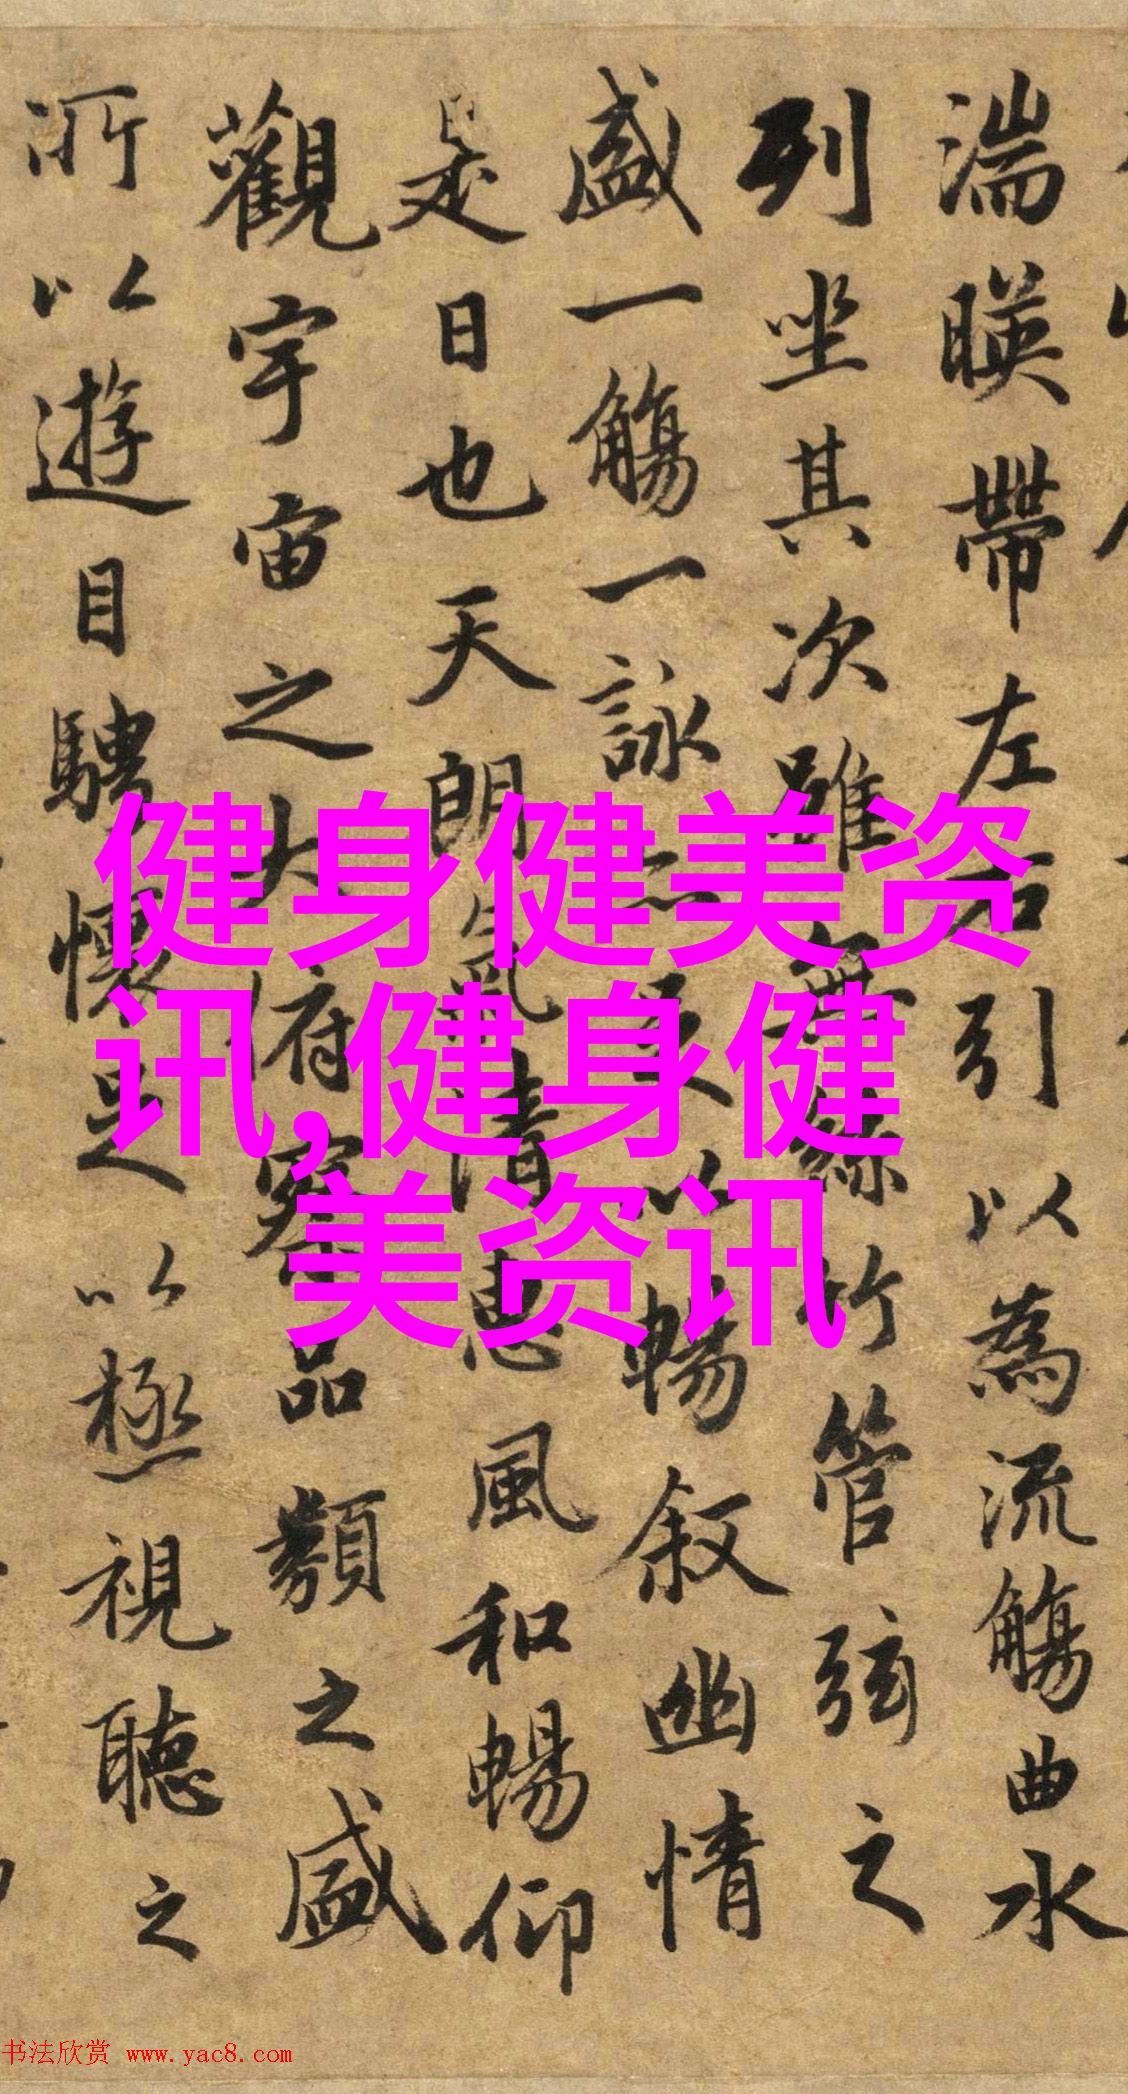 湍暎帶左右引以為流觴曲水
列坐其次雖無絲竹管弦之
盛一觴一詠亦足以暢叙幽情
是日也天朗氣清惠風和暢仰
觀宇宙之大俯察品類之盛
所以遊目騁懷足以極視聽之
健身健美资
讯,健身健
美资讯
书法欣赏 www.yac8.com